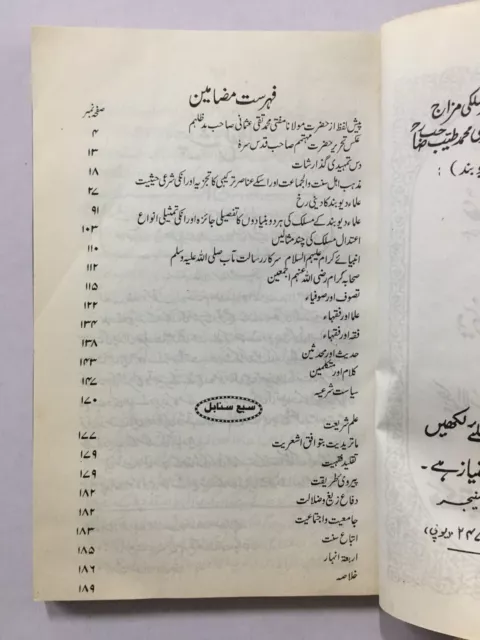 فہرست مضامین
صفحہ نمبر
پیش لفظ از حضرت مولانا مفتی محمد تقی عثمانی صاحب مدظلہم ۴
عکس تحریر حضرت مہتمم صاحب قدس سرہ ۱۳
دس تمہیدی گذارشات ۱۸
مذہب اہل سنت والجماعت اور اسکے عناصر ترکیبی کا تجزیہ اور انکی شرعی حیثیت ۲۷
علماء دیوبند کا دینی رخ ۹۱
علماء دیوبند کے مسلک کی ہر دو بنیادوں کا تفصیلی جائزہ اور انکی تمثیلی انواع ۱۰۳
اعتدال مسلک کی چند مثالیں ۱۱۰
انبیائے کرام علیہم السلام سرکار رسالت مآب صلی اللہ علیہ وسلم ۱۱۲
صحابہ کرام رضی اللہ عنہم اجمعین ۱۱۵
تصوف اور صوفیاء ۱۲۲
علما اور فقہاء ۱۳۴
فقہ اور فقہاء ۱۳۸
حدیث اور محدثین ۱۴۳
کلام اور متکلمین ۱۴۷
سیاست شرعیہ ۱۷۰
سبع سنابل
علم شریعت ۱۷۷
ماتریدیت بتوافق اشعریت ۱۷۹
تقلید فقہیت ۱۷۹
پیروی طریقت ۱۸۲
دفاع زیغ و ضلالت ۱۸۲
جامعیت و اجتماعیت ۱۸۳
اتباع سنت ۱۸۵
اربعۃ انہار ۱۸۶
خلاصہ ۱۸۹
مزاج
محمد طیب صاحب
بند) :
رکھیں
ہے۔